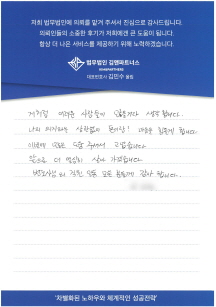 저희 법무법인에 의뢰를 맡겨 주셔서 진심으로 감사드립니다.
의뢰인들의 소중한 후기가 저희에겐 큰 도움이 됩니다.
항상 더 나은 서비스를 제공하기 위해 노력하겠습니다.
법무법인 김앤파트너스
KIM&PARTNERS
대표변호사 김민수 올림
저처럼 어려운 사람들에 생각 합니다.
나의 힘들게 합니다.
도움 주셔서 고맙습니다
앞으로 더 열심히 살아 가겠습니다
변호사님 직원 모든 분들께 감사 합니다.
"차별화된 노하우와 체계적인 성공전략"